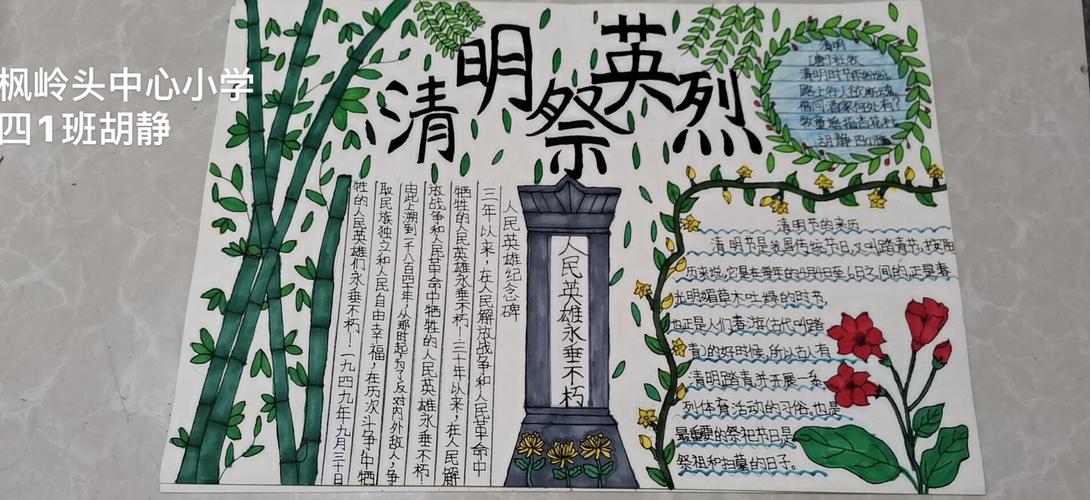 枫岭头中心小学
四1班胡静
清明祭英烈
清明
[唐]杜牧
清明时节雨纷纷
路上行人欲断魂
借问酒家何处有?
牧童遥指杏花村
胡静 四(1)班
人民英雄纪念碑
三年以来,在人民解放战争和人民革命中
牺牲的人民英雄永垂不朽!三十年以来,在人民解
放战争和人民革命中牺牲的人民英雄永垂不朽!
由此上溯到一千八百四十年,从那时起,为了反对内外敌人,争
取民族独立和人民自由幸福,在历次斗争中牺
牲的人民英雄们永垂不朽!一九四九年九月三十日
人民英雄永垂不朽
清明节的来历
清明节是我国传统节日,又叫踏青节,按阳
历来说,它是在每年的4月4日至6日之间的,正是春
光明媚草木吐绿的时节,
也正是人们春游(古代叫踏
青)的好时候,所以古人有
清明踏青并开展一系
列体育活动的习俗,也是
最重要的祭祀节日是
祭祖和扫墓的日子。